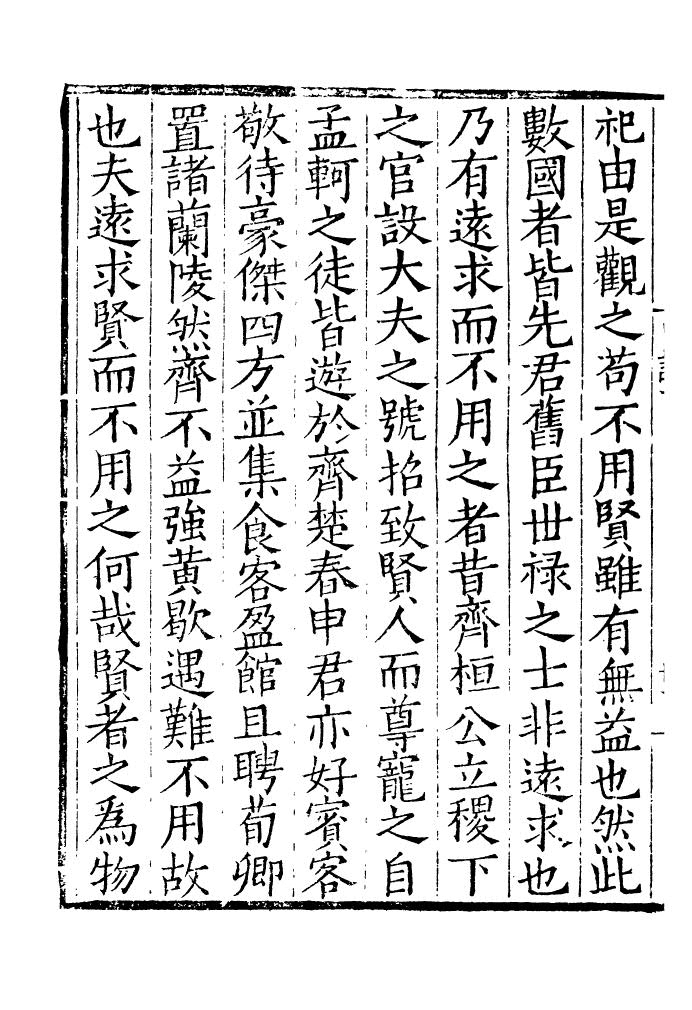 祀由是觀之苟不用賢雖有無益也然此
數國者皆先君舊臣世祿之士非遠求也
乃有遠求而不用之者昔齊桓公立稷下
之官設大夫之號招致賢人而尊寵之自
孟軻之徒皆遊於齊楚春申君亦好賓客
敬待豪傑四方並集食客盈館且聘荀卿
置諸蘭陵然齊不益強黃歇遇難不用故
也夫遠求賢而不用之何哉賢者之爲物